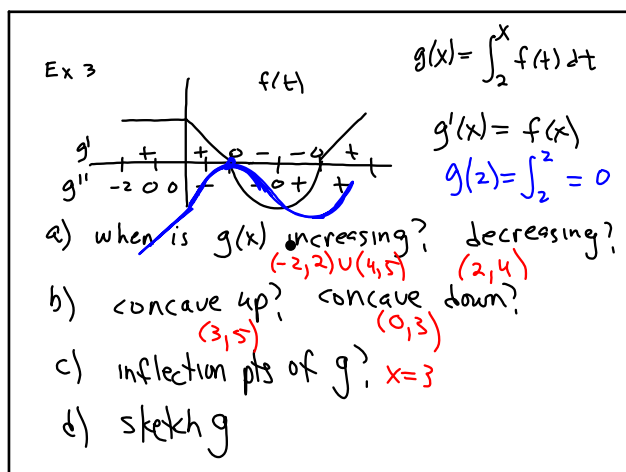 Ex 3
f(t)
g(x) = ∫₂ˣ f(t) dt
g' + + 0 - - 0 +
g'(x) = f(x)
g'' -2 0 0 - - 0 + +
g(2) = ∫₂² = 0
a) when is g(x) increasing? decreasing?
(-2,2)∪(4,5) (2,4)
b) concave up? concave down?
(3,5) (0,3)
c) inflection pts of g? x=3
d) sketch g